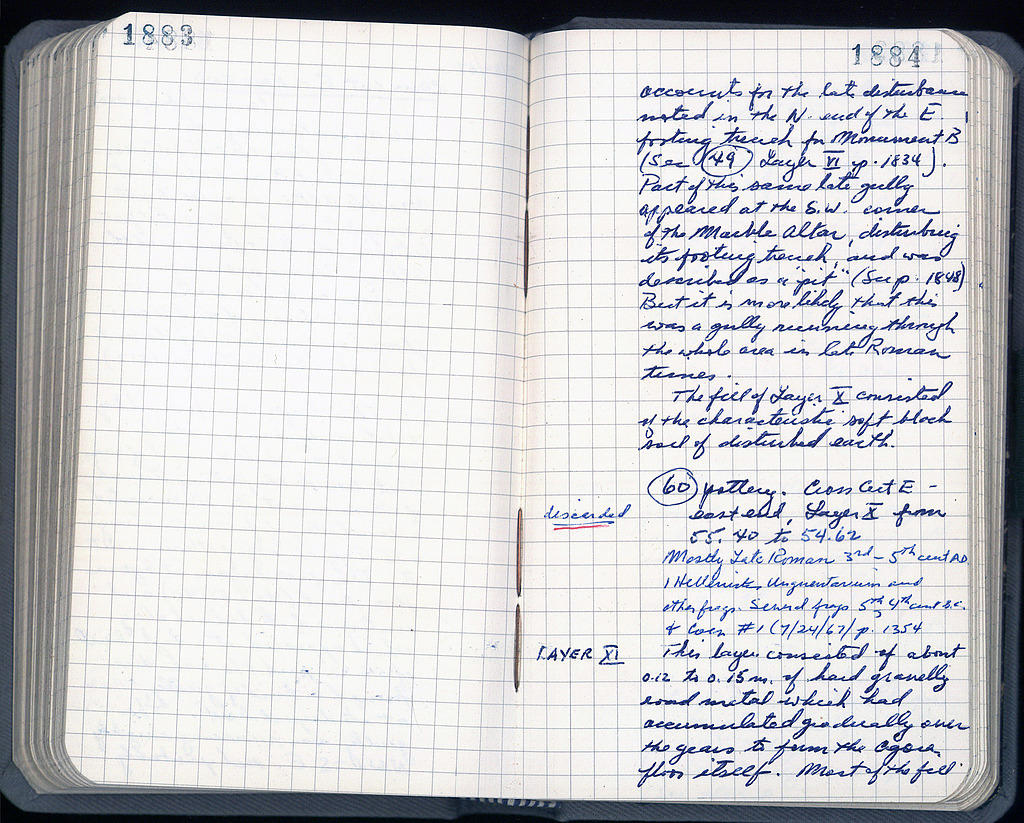 1883
1884
accounts for the late disturbance
noted in the N. end of the E.
footing trench for Monument B
(See 49 Layer VI p. 1834).
Part of this same late gully
appeared at the S.W. corner
of the Marble Altar, disturbing
its footing trench, and was
described as a "pit" (See p. 1848)
But it is more likely that this
was a gully running through
the whole area in late Roman
times.
The fill of Layer X consisted
of the characteristic soft black
soil of disturbed earth.
60 pottery. Cross Cut E -
discarded
east end, Layer X from
55.40 to 54.62
Mostly Late Roman 3rd - 5th cent AD.
1 Hellenistic Unguentarium and
other frags. Several frags 5th, 4th cent B.C.
& Coin #1 (7/24/67) p. 1354
LAYER XI
This layer consisted of about
0.12 to 0.15 m. of hard gravelly
road metal which had
accumulated gradually over
the years to form the agora
floor itself. Most of the fill